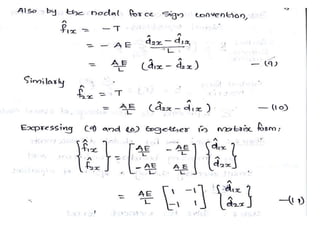 Also by the nodal force sign convention,
f̂1x = - T
= - AE (d̂2x - d̂1x)/L
= AE/L (d̂1x - d̂2x) — (9)
Similarly
f̂2x = T
= AE/L (d̂2x - d̂1x) — (10)
Expressing (9) and (10) together in matrix form:
{f̂1x f̂2x} = [AE/L -AE/L -AE/L AE/L] {d̂1x d̂2x}
= AE/L [1 -1 -1 1] {d̂1x d̂2x} — (11)